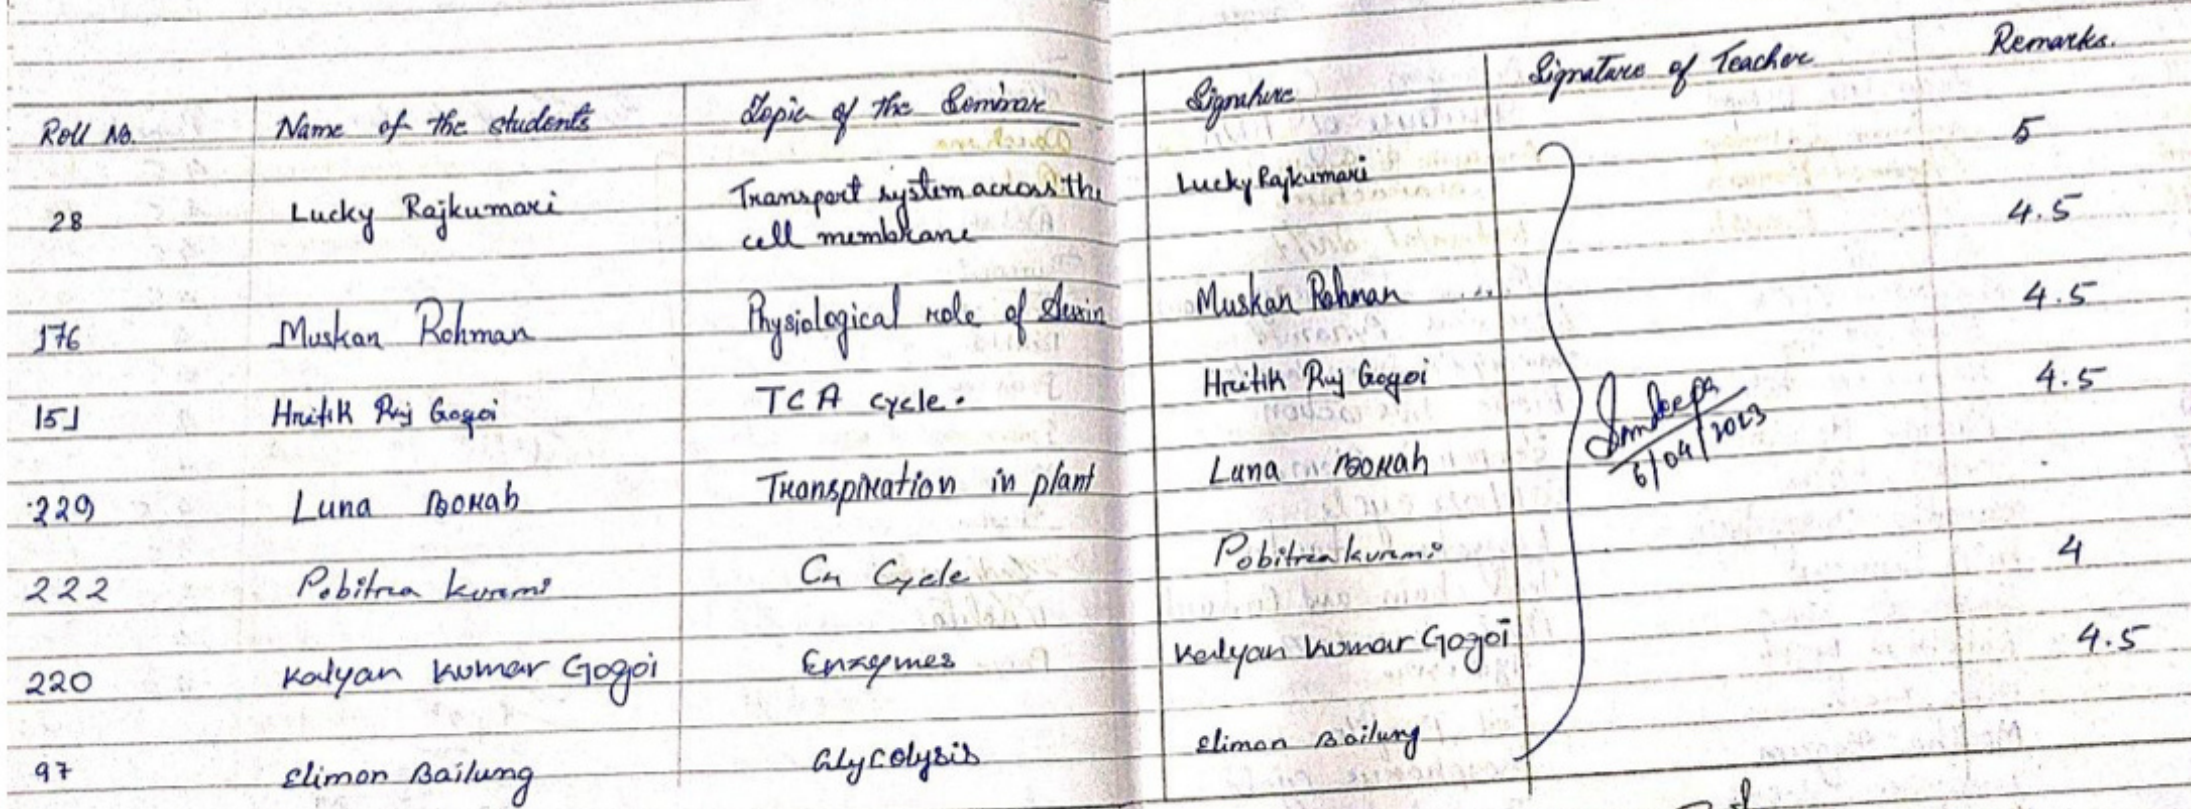 Roll No. Name of the students Topic of the Seminar Signature Signature of Teacher Remarks.
28 Lucky Rajkumari Transport system across the Lucky Rajkumari 5
cell membrane 4.5
176 Muskan Rohman Physiological role of Auxin Muskan Rohman 4.5
151 Hritik Raj Gogoi TCA cycle. Hritik Raj Gogoi 4.5
6/04/2023
229 Luna Borah Transpiration in plant Luna Borah
222 Pobitra Kurmi C4 Cycle Pobitra Kurmi 4
220 Kalyan Kumar Gogoi Enzymes Kalyan Kumar Gogoi 4.5
97 Elimon Bailung Glycolysis Elimon Bailung